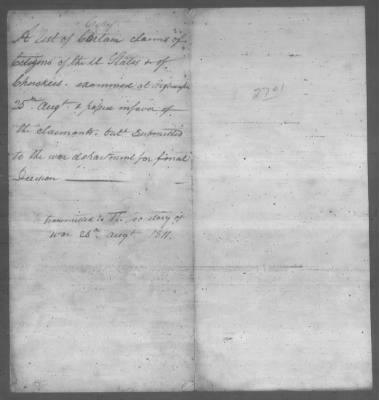 Copy
A List of Certain claims of
Citizens of the U States & of
Cherokees. examined at
25th Augt & papers in favor of
the claimants. but Submitted
to the war department for final
Decision
transmitted to the secretary of
war 26th Augt 1811.
2701